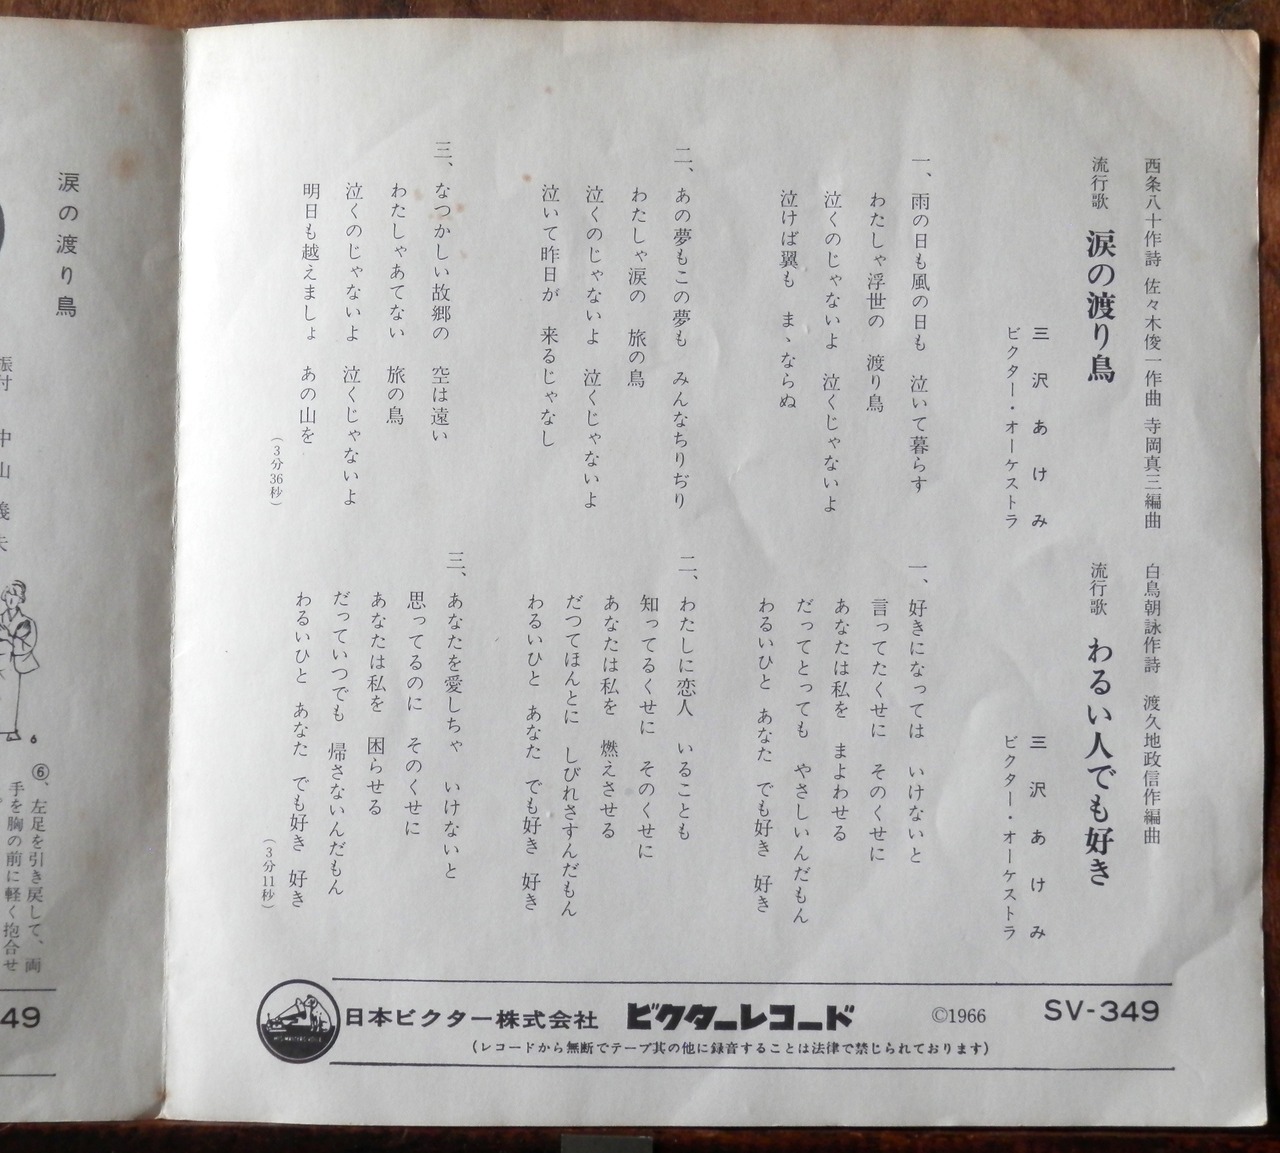 西条八十作詩 佐々木俊一作曲 寺岡真三編曲
流行歌 涙の渡り鳥
三沢あけみ
ビクター・オーケストラ
一、雨の日も風の日も 泣いて暮らす
わたしゃ浮世の 渡り鳥
泣くのじゃないよ 泣くじゃないよ
泣けば翼も まゝならぬ
二、あの夢もこの夢も みんなちりぢり
わたしゃ涙の 旅の鳥
泣くのじゃないよ 泣くじゃないよ
泣いて昨日が 来るじゃなし
三、なつかしい故郷の 空は遠い
わたしゃあてない 旅の鳥
泣くのじゃないよ 泣くじゃないよ
明日も越えましょ あの山を
(3分36秒)
白鳥朝詠作詩 渡久地政信作編曲
流行歌 わるい人でも好き
三沢あけみ
ビクター・オーケストラ
一、好きになっては いけないと
言ってたくせに そのくせに
あなたは私を まよわせる
だってとっても やさしいんだもん
わるいひと あなた でも好き 好き
二、わたしに恋人 いることも
知ってるくせに そのくせに
あなたは私を 燃えさせる
だつてほんとに しびれさすんだもん
わるいひと あなた でも好き 好き
三、あなたを愛しちゃ いけないと
思ってるのに そのくせに
あなたは私を 困らせる
だっていつでも 帰さないんだもん
わるいひと あなた でも好き 好き
(3分11秒)
日本ビクター株式会社 ビクターレコード ©1966 SV-349
(レコードから無断でテープ其の他に録音することは法律で禁じられております)
HIS MASTER'S VOICE
涙の渡り鳥
振付 中山義夫
6
⑥、左足を引き戻して、両
手を胸の前に軽く抱合せ
49